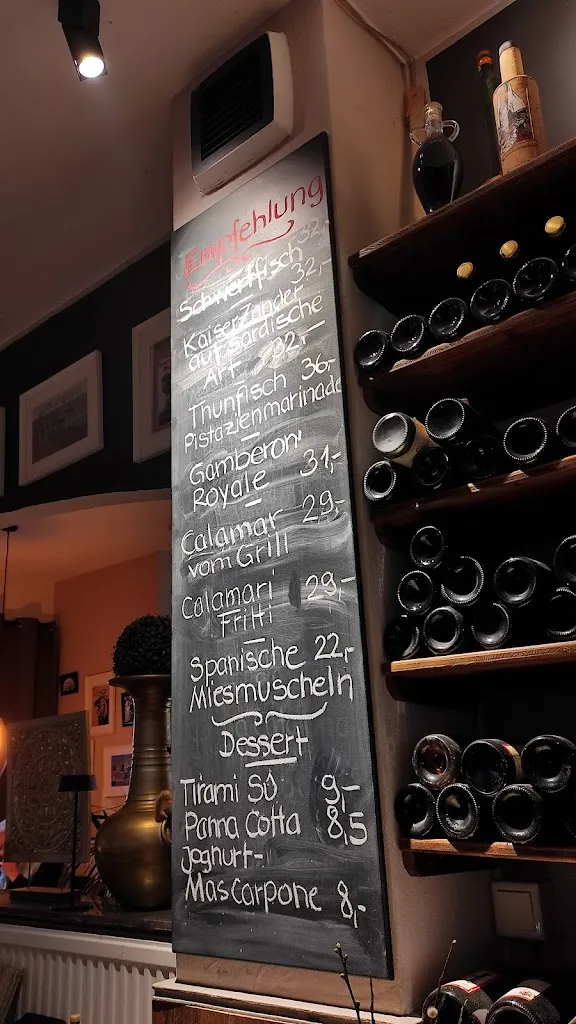 Empfehlung
Schwertfisch 32,-
Kaiserzander 32,-
auf sardische
Art 32,-
Thunfisch 36,-
Pistazienmarinade
Gamberoni
Royale 31,-
Calamar 29,-
vom Grill
Calamari 29,-
Fritti
Spanische 22,-
Miesmuscheln
Dessert
Tirami Sû 9,-
Panna Cotta 8,5
Joghurt-
Mascarpone 8,-